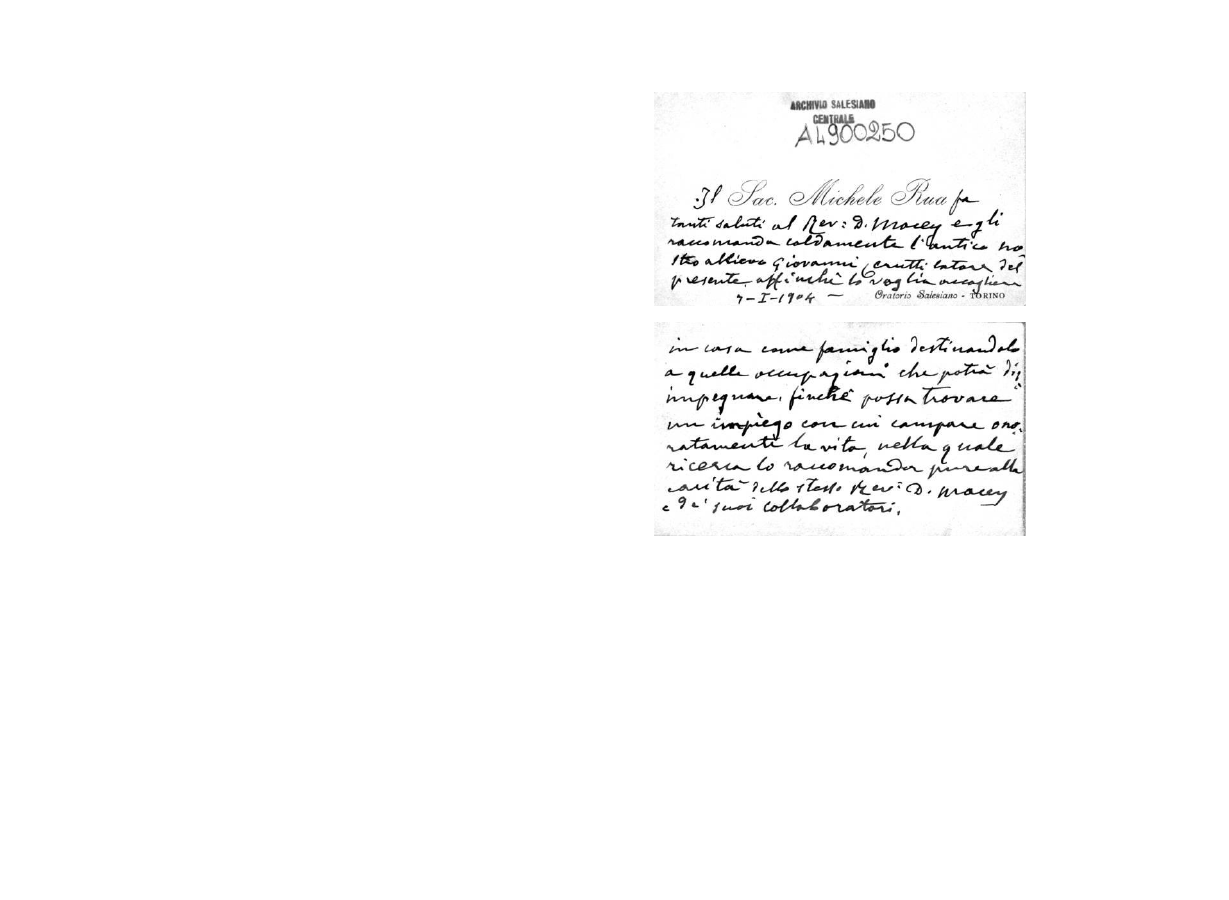 ARCHIVIO SALESIANO
CENTRALE
A4900250
Il Sac. Michele Rua fa
tanti saluti al Rev: D. Macey e gli
raccomanda caldamente l'antico no
stro allievo Giovanni latore del
presente, affinchè lo voglia accogliere
7-I-1904 — Oratorio Salesiano - TORINO
in casa come famiglio destinandolo
a quelle occupazioni che potrà dis
impegnare, finchè possa trovare
un impiego con cui campare ono-
ratamente la vita, nella quale
ricerca lo raccomanda pure alla
carità dello stesso Rev: D. Macey
e de' suoi collaboratori.